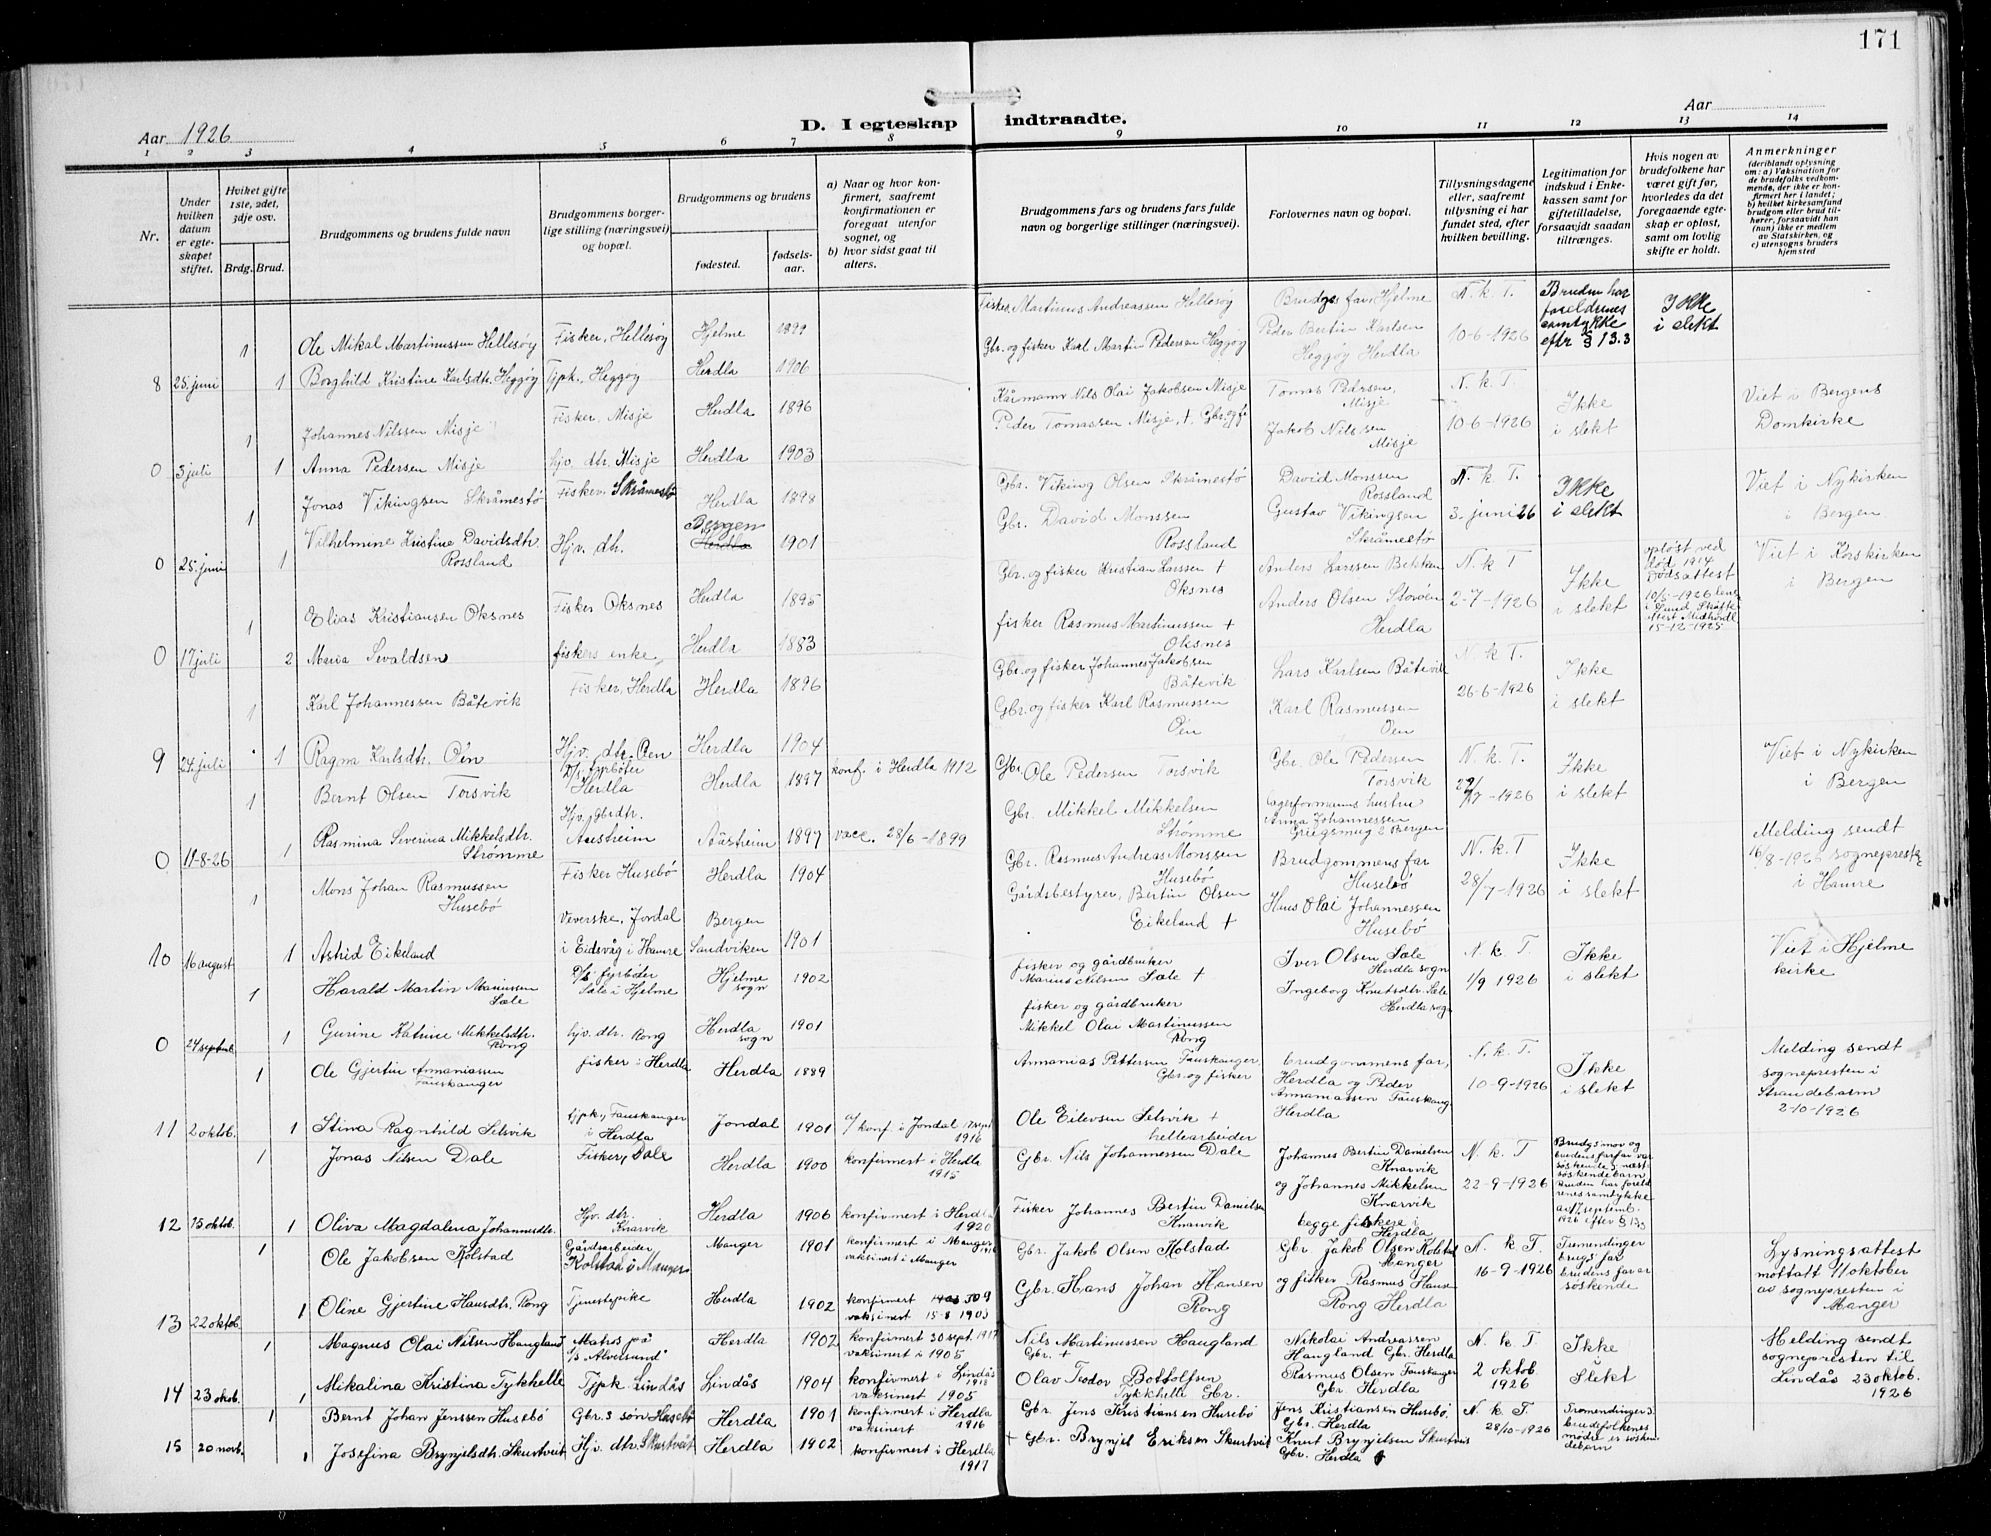 171
Aar 1926
D. I egteskap
indtraadte.
Aar
1 2 3 4 5 6 7 8 9 10 11 12 13 14
Nr.
Under hvilken datum er egteskapet stiftet.
Hviket gifte 1ste, 2det, 3dje osv.
Brdg. Brud.
Brudgommens og brudens fulde navn
Brudgommens borgerlige stilling (næringsvei) og bopæl.
Brudgommens og brudens
fødested.
fødselsaar.
a) Naar og hvor konfirmert, saafremt konfirmationen er foregaat utenfor sognet, og
b) hvor sidst gaat til alters.
Brudgommens fars og brudens fars fulde navn og borgerlige stillinger (næringsvei).
Forlovernes navn og bopæl.
Tillysningsdagene eller, saafremt tillysning ei har fundet sted, efter hvilken bevilling.
Legitimation for indskud i Enkekassen samt for giftetilladelse, forsaavidt saadan tiltrænges.
Hvis nogen av brudefolkene har været gift før, hvorledes da det foregaaende egteskap er opløst, samt om lovlig skifte er holdt.
Anmerkninger
(deriblandt oplysning om: a) Vaksination for de brudefolks vedkommende, der ikke er konfirmert her i landet; b) hvilket kirkesamfund brudgom eller brud tilhører, forsaavidt han (hun) ikke er medlem av Statskirken, og c) utensogns bruders hjemsted
1 Ole Mikal Martinussen Hellesøy Fisker, Hellesøy Hjelme 1899 Fisker Martinus Andreassen Hellesøy Brudges far, Hjelme N. k. T. Bruden har foreldrenes samtykke efter § 13.3 Ikke i slekt
8 25. juni 1 Borghild Kristine Karlsdtr. Heggøy Tjpk., Heggøy Herdla 1906 Gbr. og fisker Karl Martin Pedersen Heggøy Peder Bertin Karlsen Heggøy Herdla 10-6-1926
1 Johannes Nilssen Misje Fisker, Misje Herdla 1896 Kårmann Nils Olai Jakobsen Misje Tomas Petersen, Misje N. k. T. Ikke i slekt Viet i Bergens Domkirke
0 3 juli 1 Anna Pedersen Misje hjv. dtr. Misje Herdla 1903 Peder Tomassen Misje, +, Gbr. og fi Jakob Nilssen Misje 10-6-1926
1 Jonas Vikingsen Skråmestø Fisker Skråmestø Herdla 1898 Gbr. Viking Olsen Skråmestø David Monssen Rossland N. k. T. Ikke i slekt Viet i Nykirken i Bergen
0 25. juni 1 Vilhelmine Kristine Davidsdtr. Rossland Hjv. dtr. Bergen Herdla 1901 Gbr. David Monssen Rossland Gustav Vikingsen Skråmestø 3. juni 26
1 Elias Kristiansen Oksnes Fisker Oksnes Herdla 1895 Gbr. og fisker Kristian Larssen + Oksnes Anders Larssen N. k. T Ikke i slekt opløst ved død 1914 Dødsattest 10/5-1926 15-12-1925 Viet i Korskirken i Bergen
0 17 juli 2 Maria Sevaldsen fiskers enke Herdla 1883 fisker Rasmus Martinussen + Oksnes Anders Olsen Storøen Herdla 2-7-1926
1 Karl Johannessen Båtevik Fisker, Herdla Herdla 1896 Gbr. og fisker Johannes Jakobsen Båtevik Lars Karlsen Båtevik N. k. T. Ikke i slekt
9 24. juli 1 Ragna Karlsdtr. Oen Hjv. dtr. Oen Herdla 1904 Gbr. og fisker Karl Rasmussen Oen Karl Rasmussen Oen 26-6-1926
1 Bernt Olsen Torsvik D/s fyrbøter Herdla Herdla 1897 konf. i Herdla 1912 Gbr. Ole Pedersen Torsvik Gbr. Ole Pedersen Torsvik N. k. T. Ikke i slekt Viet i Nykirken i Bergen
0 11-8-26 1 Rasmina Severina Mikkelsdtr. Strømme Hjv. gbrdtr. Austrheim 1897 vacc. 28/6-1899 Gbr. Mikkel Mikkelsen Strømme Lagerformanns hustru Anna Johannessen Griegsmug 2 Bergen 22/7-1926
1 Mons Johan Rasmussen Husebø Fisker Husebø Herdla 1904 Gbr. Rasmus Andreas Monssen Husebø Brudgommens far Husebø N. k. T Ikke i slekt Melding sendt 16/8-1926 sogneprest i Hamre
10 16 august 1 Astrid Eikeland Veverske, Jordal i Eidsvåg i Hamre Bergen Sandviken 1901 Gårdsbestyrer, Bertin Olsen Eikeland + Hans Olai Johannessen Husebø 28/7-1926
1 Harald Martin Mariussen Sæle D/s fyrbøter Sæle i Hjelme Hjelme sogn 1902 fisker og gårdbruker Marius Nilsen Sæle + Iver Olsen Sæle Herdla sogn N. k. T. Ikke i slekt Viet i Hjelme kirke
0 24 septemb. 1 Gurine Katrine Mikkelsdtr. Rong hjv. dtr. Rong Herdla sogn 1901 fisker og gårdbruker Mikkel Olai Martinussen Rong Ingeborg Knutsdtr. Sæle Herdla sogn 1/9 1926
1 Ole Gjertin Annaniassen Fauskanger fisker i Herdla Herdla 1889 Annanias Pettersen Fauskanger, Gbr. og fisker brudgommens far, Herdla og Peder Annaniassen Fauskang. Herdla N. k. T. 10-9-1926 Ikke i slekt Melding sendt sognepresten i Strandebarm 2-10-1926
11 2 oktob. 1 Stina Ragnhild Selsvik tjpk., Fauskanger i Herdla Jondal 1901 konf. i Jondal 1916 Ole Eilevsen Selsvik + hellearbeider
1 Jonas Nilsen Dale Fisker, Dale Herdla 1900 konfirmert i Herdla 1915 Gbr. Nils Johannessen Dale Johannes Bertin Danielsen Knarvik N. k. T Brudgs mor og brudens farfar var søskende : næstsøskendebarn Bruden har foreldrenes samtykke av 17 septemb. 1926 efter § 13.3
12 15 oktob. 1 Oliva Magdalena Johannesdtr. Hjv. dtr. Knarvik Herdla 1906 konfirmert i Herdla 1920 Fisker Johannes Bertin Danielsen Knarvik og Johannes Mikkelsen Knarvik begge fiskere i Herdla 22-9-1926
1 Ole Jakobsen Kolstad Gårdsarbeider Kolstad i Manger Manger 1901 konfirmert i Manger vaksinert i Manger Gbr. Jakob Olsen Kolstad Gbr. Jakob Olsen Kolstad Manger N. k. T. Tremendinger brudgs far brudens far er søskende Lysningsattest mottatt 11 oktober av sognepresten i Manger
13 22 oktob. 1 Oline Gjertine Hansdtr. Rong Tjenestepike Herdla 1902 konfirmert vaksinert 15-8 1903 Gbr. Hans Johan Hansen Rong og fisker Rasmus Hansen Rong Herdla 16-9-1926
1 Magnus Olai Nilsen Haugland Matros på D/S "Alversund" Herdla 1902 konfirmert 30 sept. 1917 vaksinert i 1905 Nils Martinussen Haugland Gbr. + Nikolai Andreassen Haugland Gbr. Herdla N. k. T. Ikke i Slekt Melding sendt sognepresten til Lindås 23 oktob. 1926
14 23 okob. 1 Mikalina Kristina Tykkhelle Tjpk. Lindås Lindås 1904 konfirmert i Lindås 1918 vaksinert 1905 Olav Teodor Bottolfsen Tykkhelle Gbr. Rasmus Olsen Fauskanger Gbr. Herdla 2 oktob. 1926
1 Bernt Johan Jenssen Husebø Gbr.s søn Husebø Herdla 1901 konfirmert i Herdla 1916 vaksinert Gbr. Jens Kristiansen Husebø Jens Kristiansen Husebø, Gbr. Herdla N. k. T. 28/10-1926 Tremendinger : brudefolkenes mødre er søskendebarn
15 20 novb. 1 Josefina Brynjelsdtr. Skurtveit Hjv. dtr. Skurtveit Herdla 1902 konfirmert i Herdla 1917 + Gbr. Brynjel Eriksen Skurtveit Knut Brynjelsen Skurtveit Gbr. Herdla